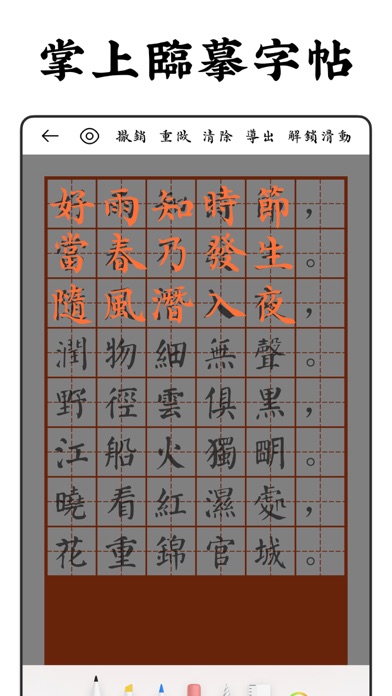 掌上臨摹字帖
撤銷 重做 清除 導出 解鎖滑動
好雨知時節，
當春乃發生。
隨風潛入夜，
潤物細無聲。
野徑雲俱黑，
江船火獨明。
曉看紅濕處，
花重錦官城。